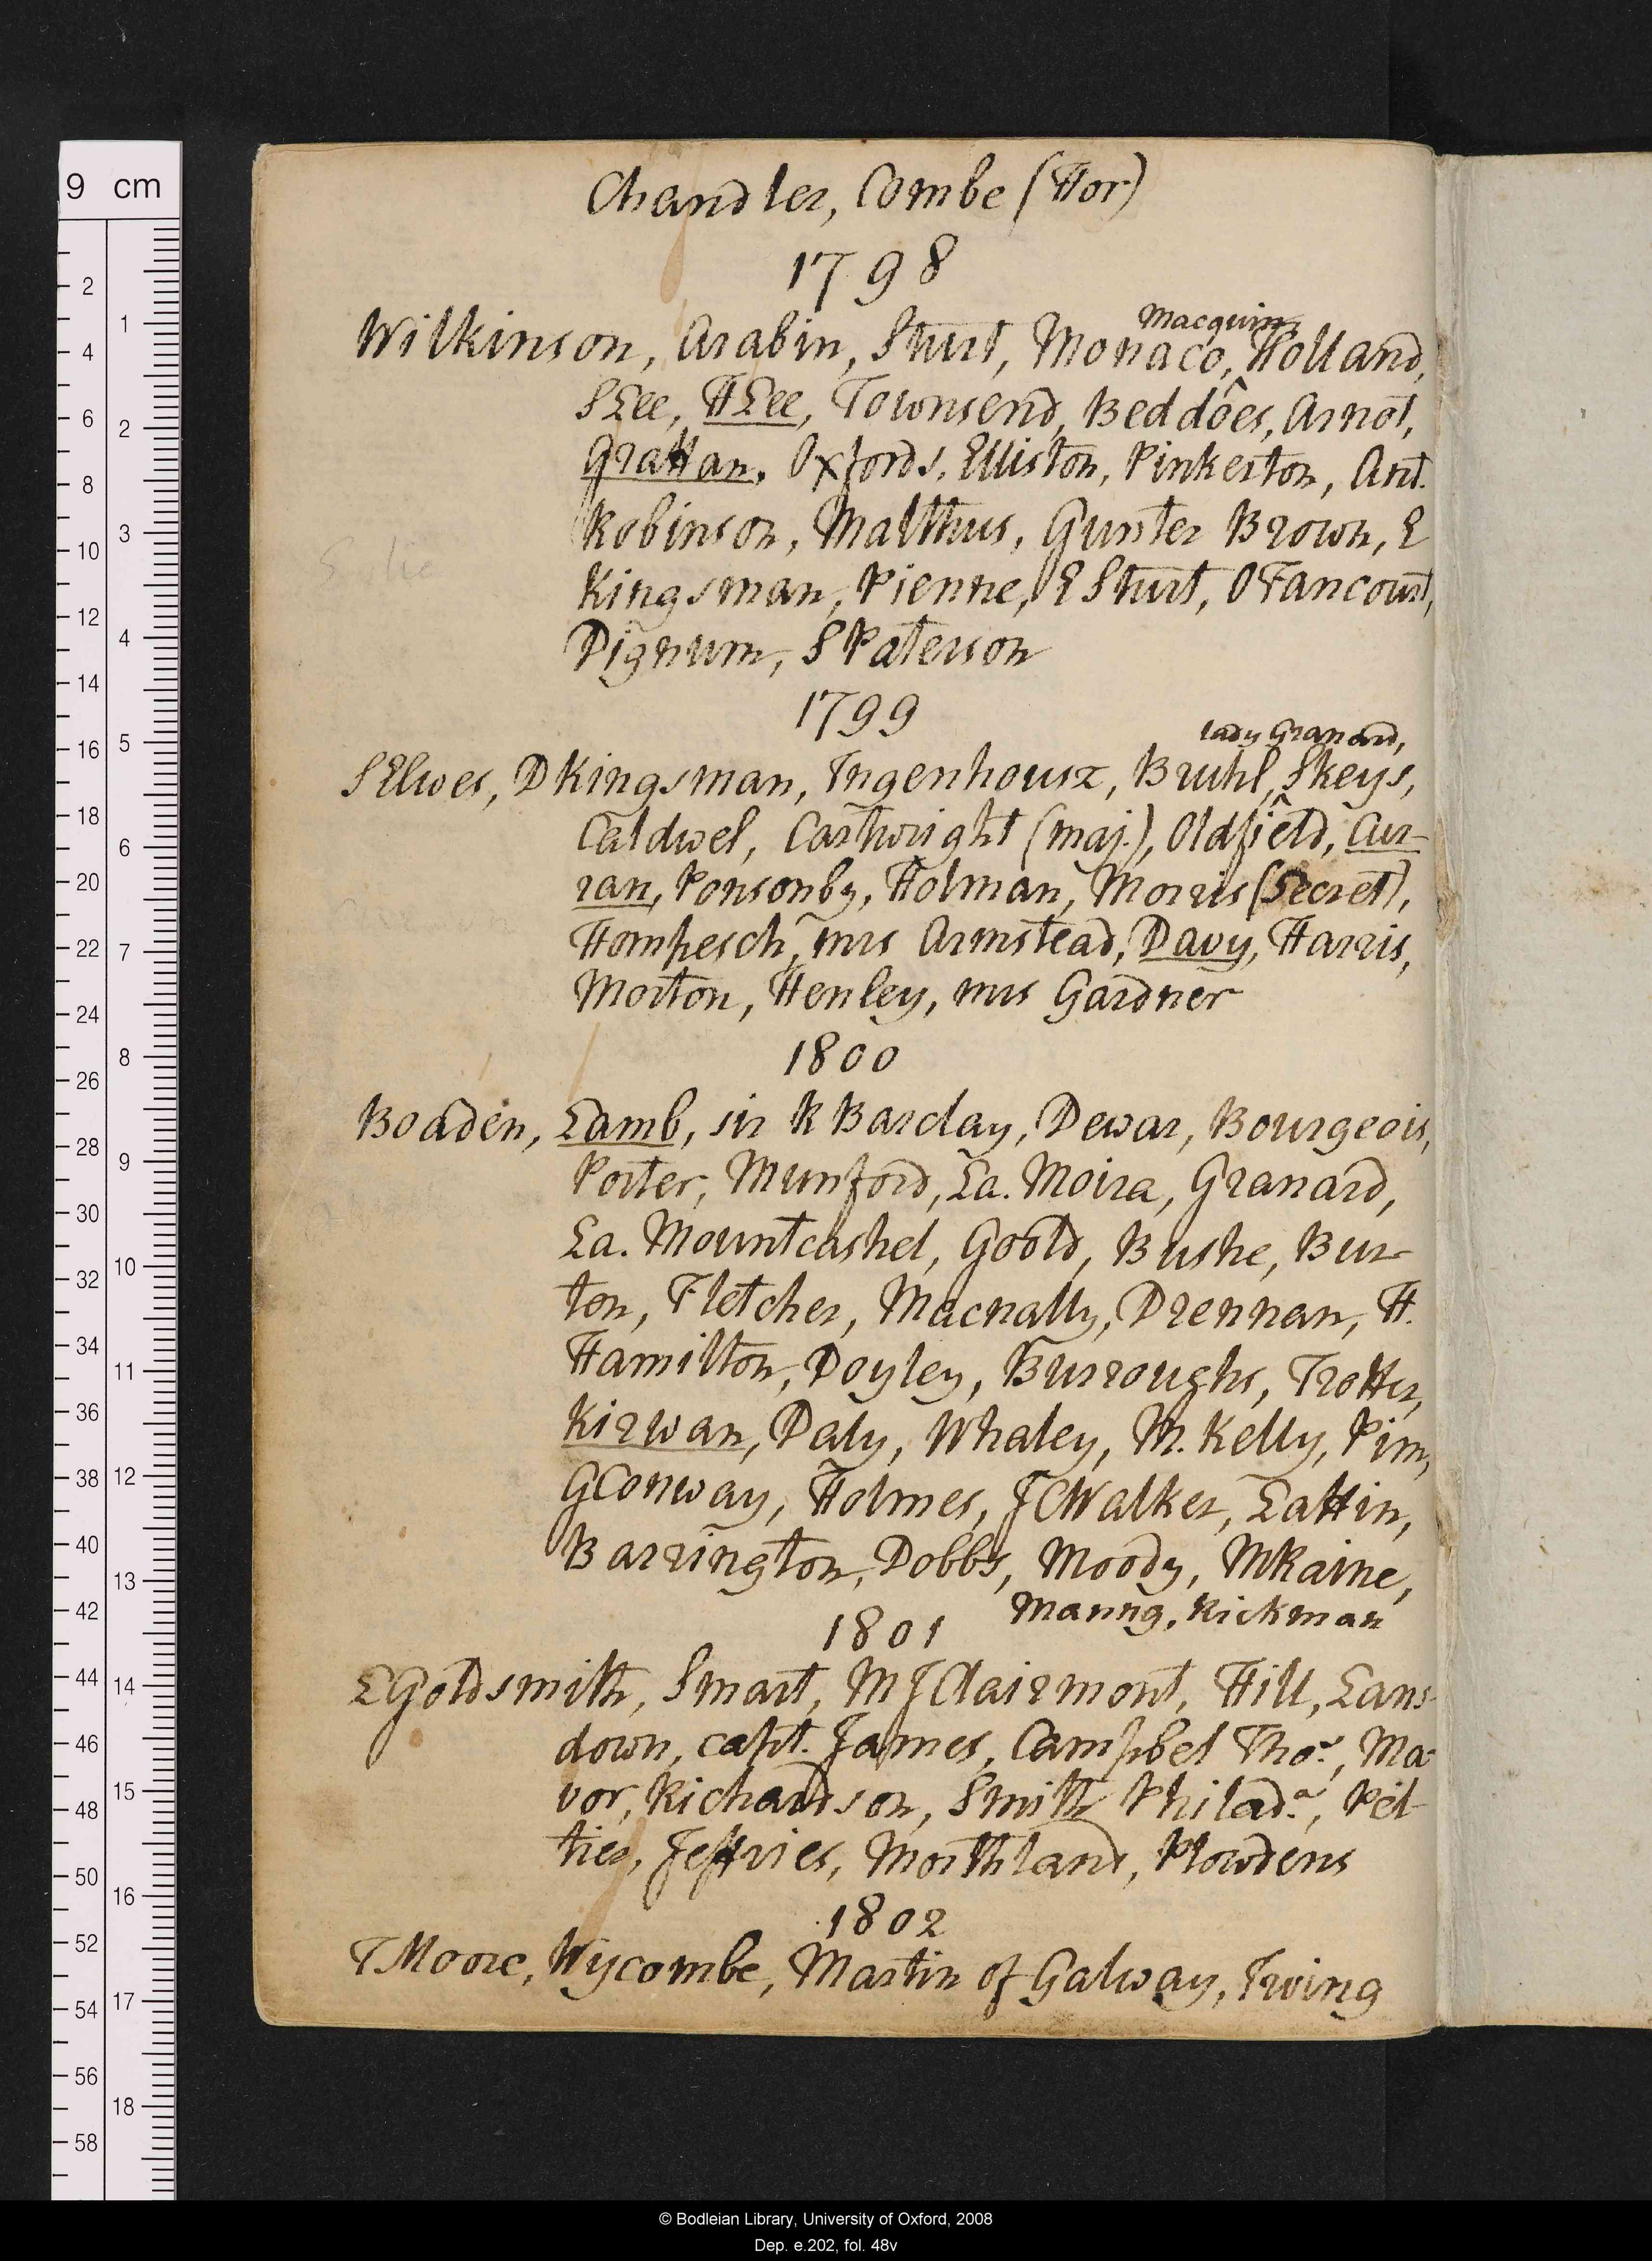 Chandler, Combe (Hor)
1798
Macquin,
Wilkinson, Arabin, Sturt, Monaco, Holland,
S Lee, H Lee, Townsend, Beddoes, Arnot,
Grattan, Oxfords, Elliston, Pinkerton, Ant.
Robinson, Malthus, Gunter Brown, E
Kingsman, Pienne, E Sturt, O Fancourt,
Dignum, S Paterson
1799
lady Granard,
S Elwes, D Kingsman, Ingenhousz, Bruhl, Skeys,
Caldwel, Cartwright (maj.), Oldfield, Cur-
ran, Ponsonby, Holman, Morris (Secret),
Hompesch, mrs Armstead, Davy, Harris,
Morton, Henley, mrs Gardner
1800
Boaden, Lamb, sir R Barclay, Dewar, Bourgeois,
Porter, Munford, La. Moira, Granard,
La. Mountcashel, Goold, Bushe, Bur-
ton, Fletcher, Macnally, Drennan, H.
Hamilton, Doyley, Burroughs, Trotter,
Kirwan, Daly, Whaley, M. Kelly, Pim,
G Conway, Holmes, J C Walker, Lattin,
Barrington, Dobbs, Moody, M Raine,
Manng, Rickman
1801
L Goldsmith, Smart, M J Clairmont, Hill, Lans-
down, capt. James, Campbel Thos., Ma-
vor, Richardson, Smith Philada., Pel-
tier, Jeffries, Morthland, Plowdens
1802
T Moore, Wycombe, Martin of Galway, Irving
9 cm
2
4
6
8
10
12
14
16
18
20
22
24
26
28
30
32
34
36
38
40
42
44
46
48
50
52
54
56
58
1
2
3
4
5
6
7
8
9
10
11
12
13
14
15
16
17
18
© Bodleian Library, University of Oxford, 2008
Dep. e.202, fol. 48v